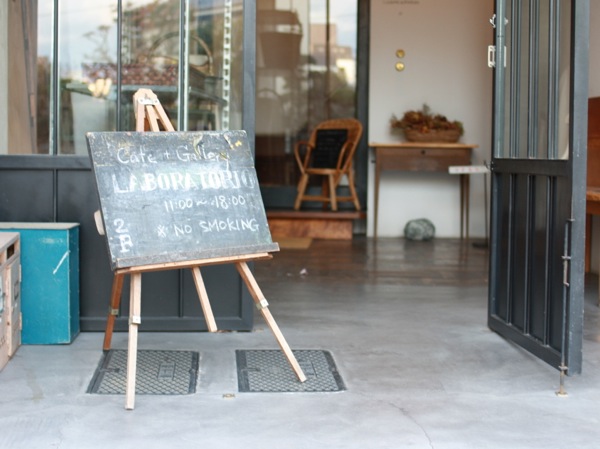 Cafe + Gallery
LABORATORIO
11:00〜18:00
2F ※ NO SMOKING